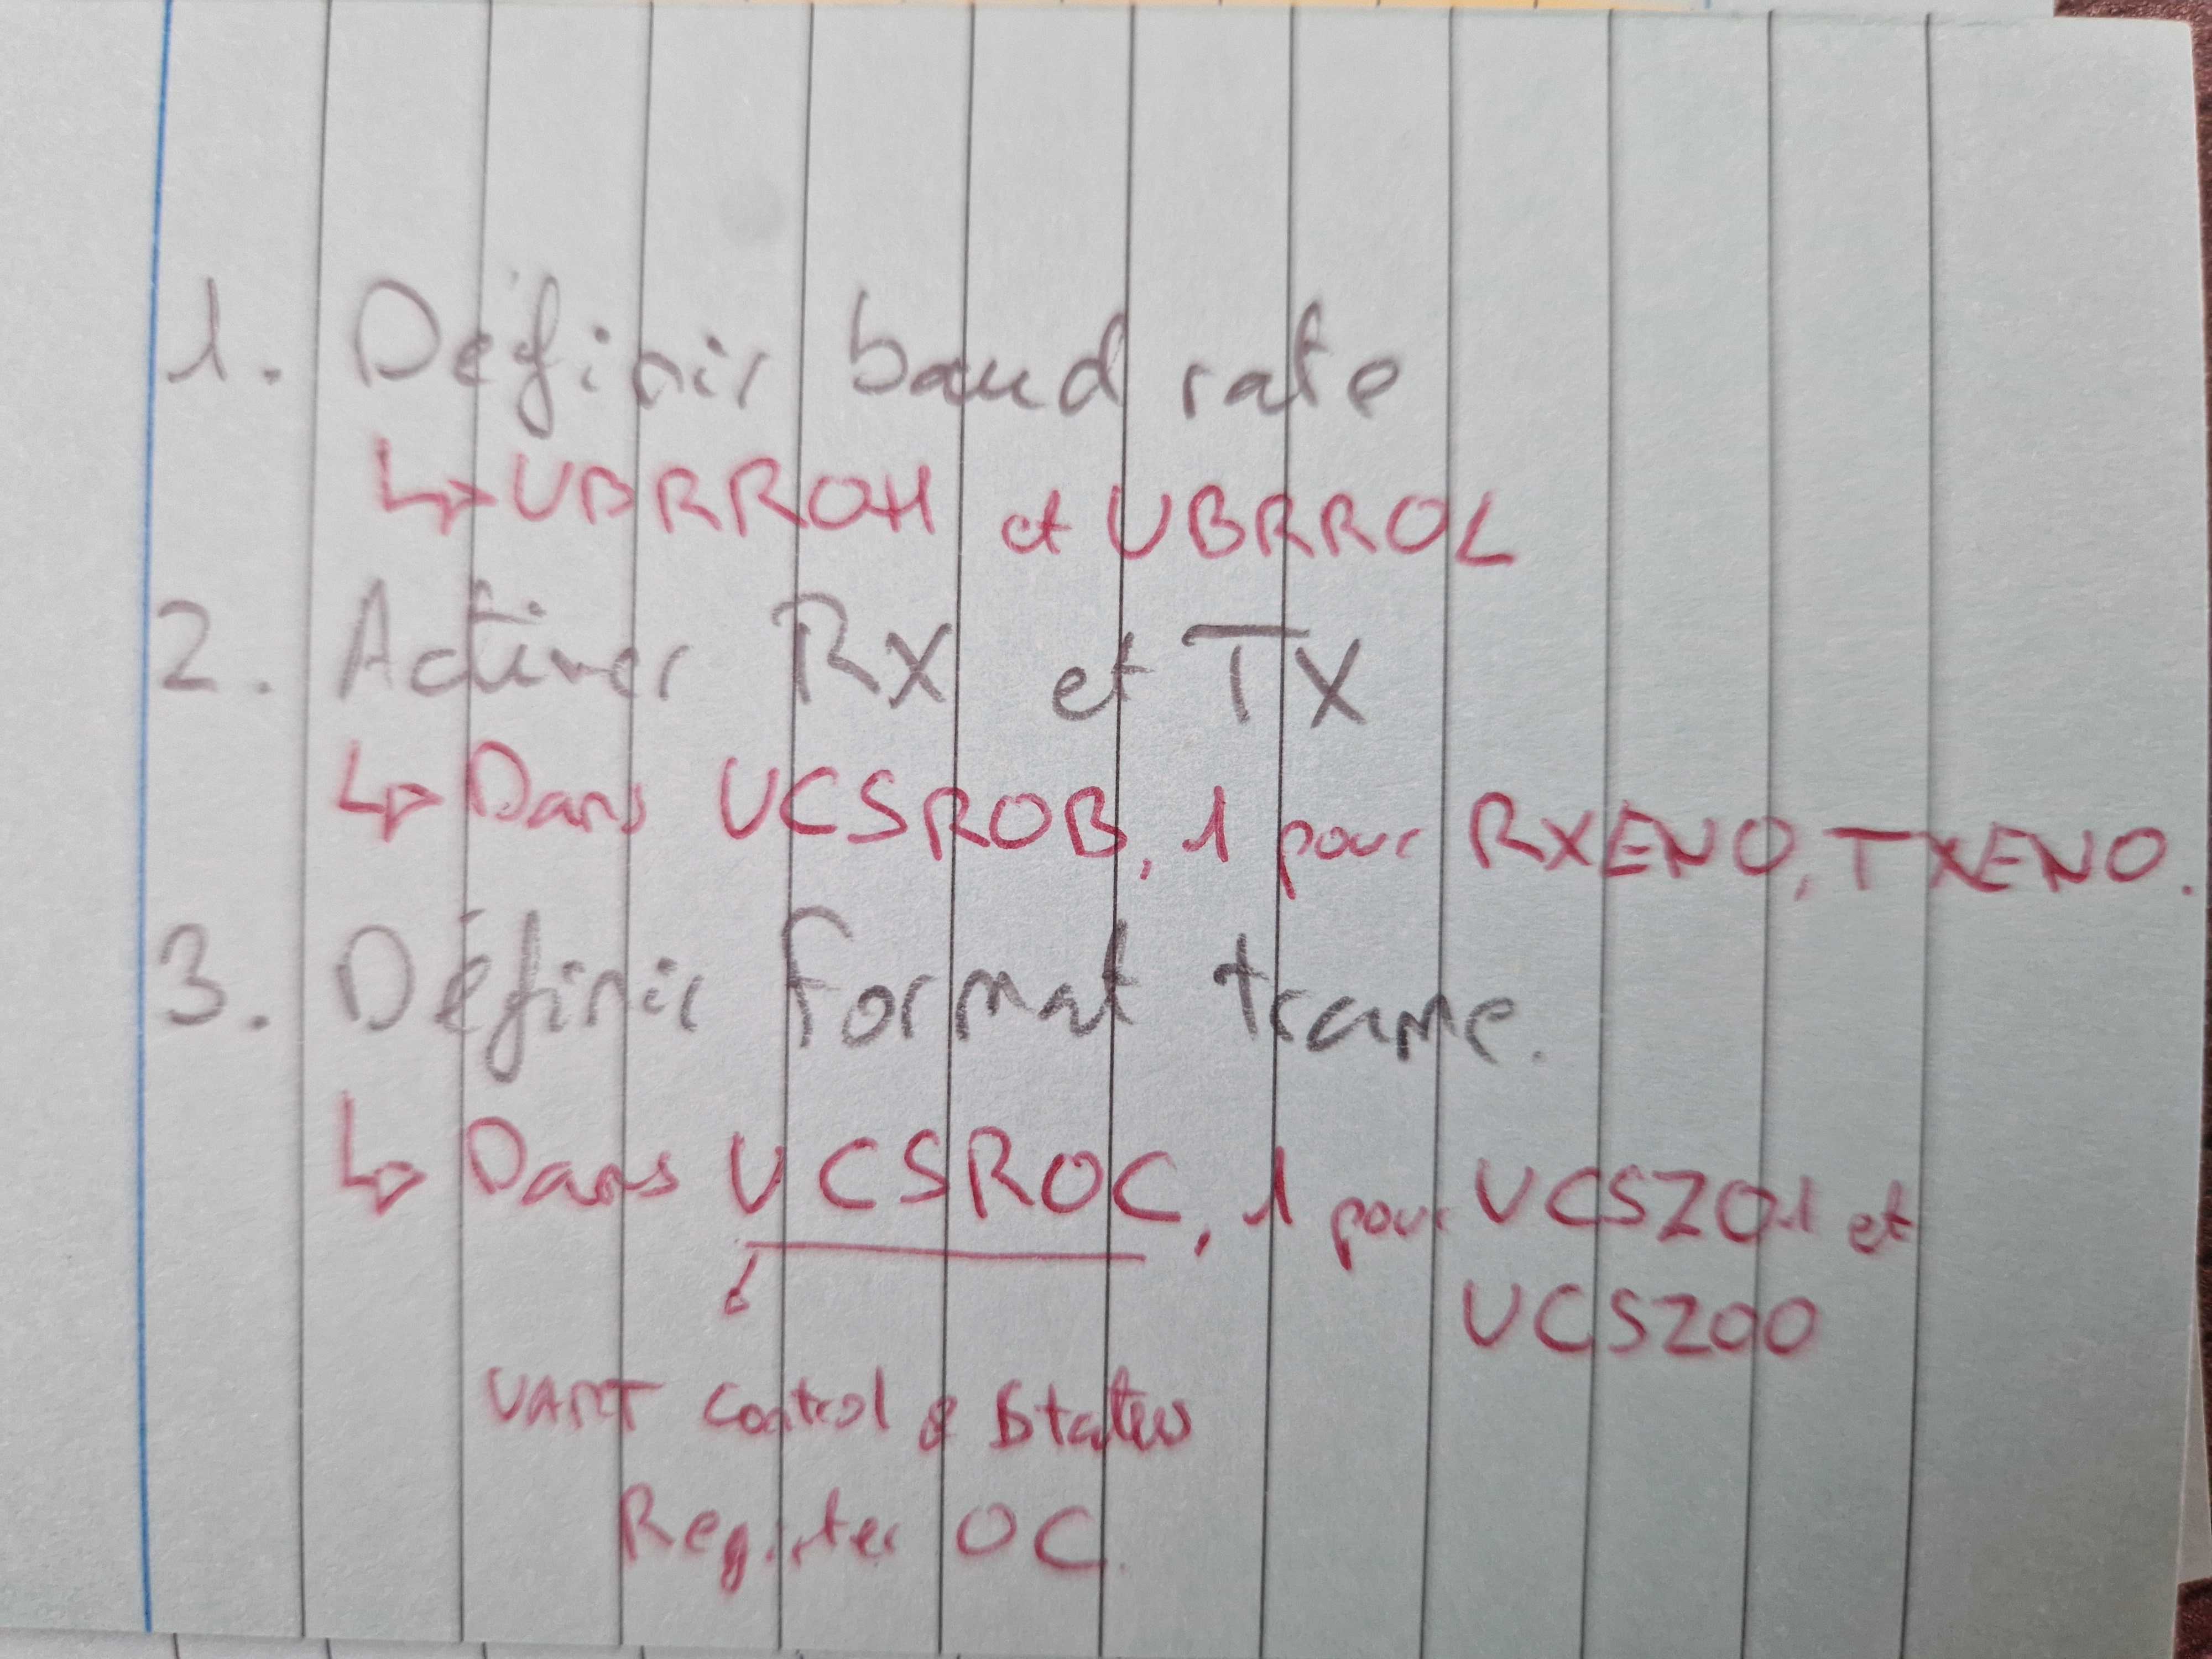 1. Définir baud rate
↳ UBRR0H et UBRR0L
2. Activer RX et TX
↳ Dans UCSR0B, 1 pour RXEN0, TXEN0.
3. Définir format trame.
↳ Dans UCSR0C, 1 pour UCSZ01 et
UCSZ00
UART Control & Status
Register 0C.